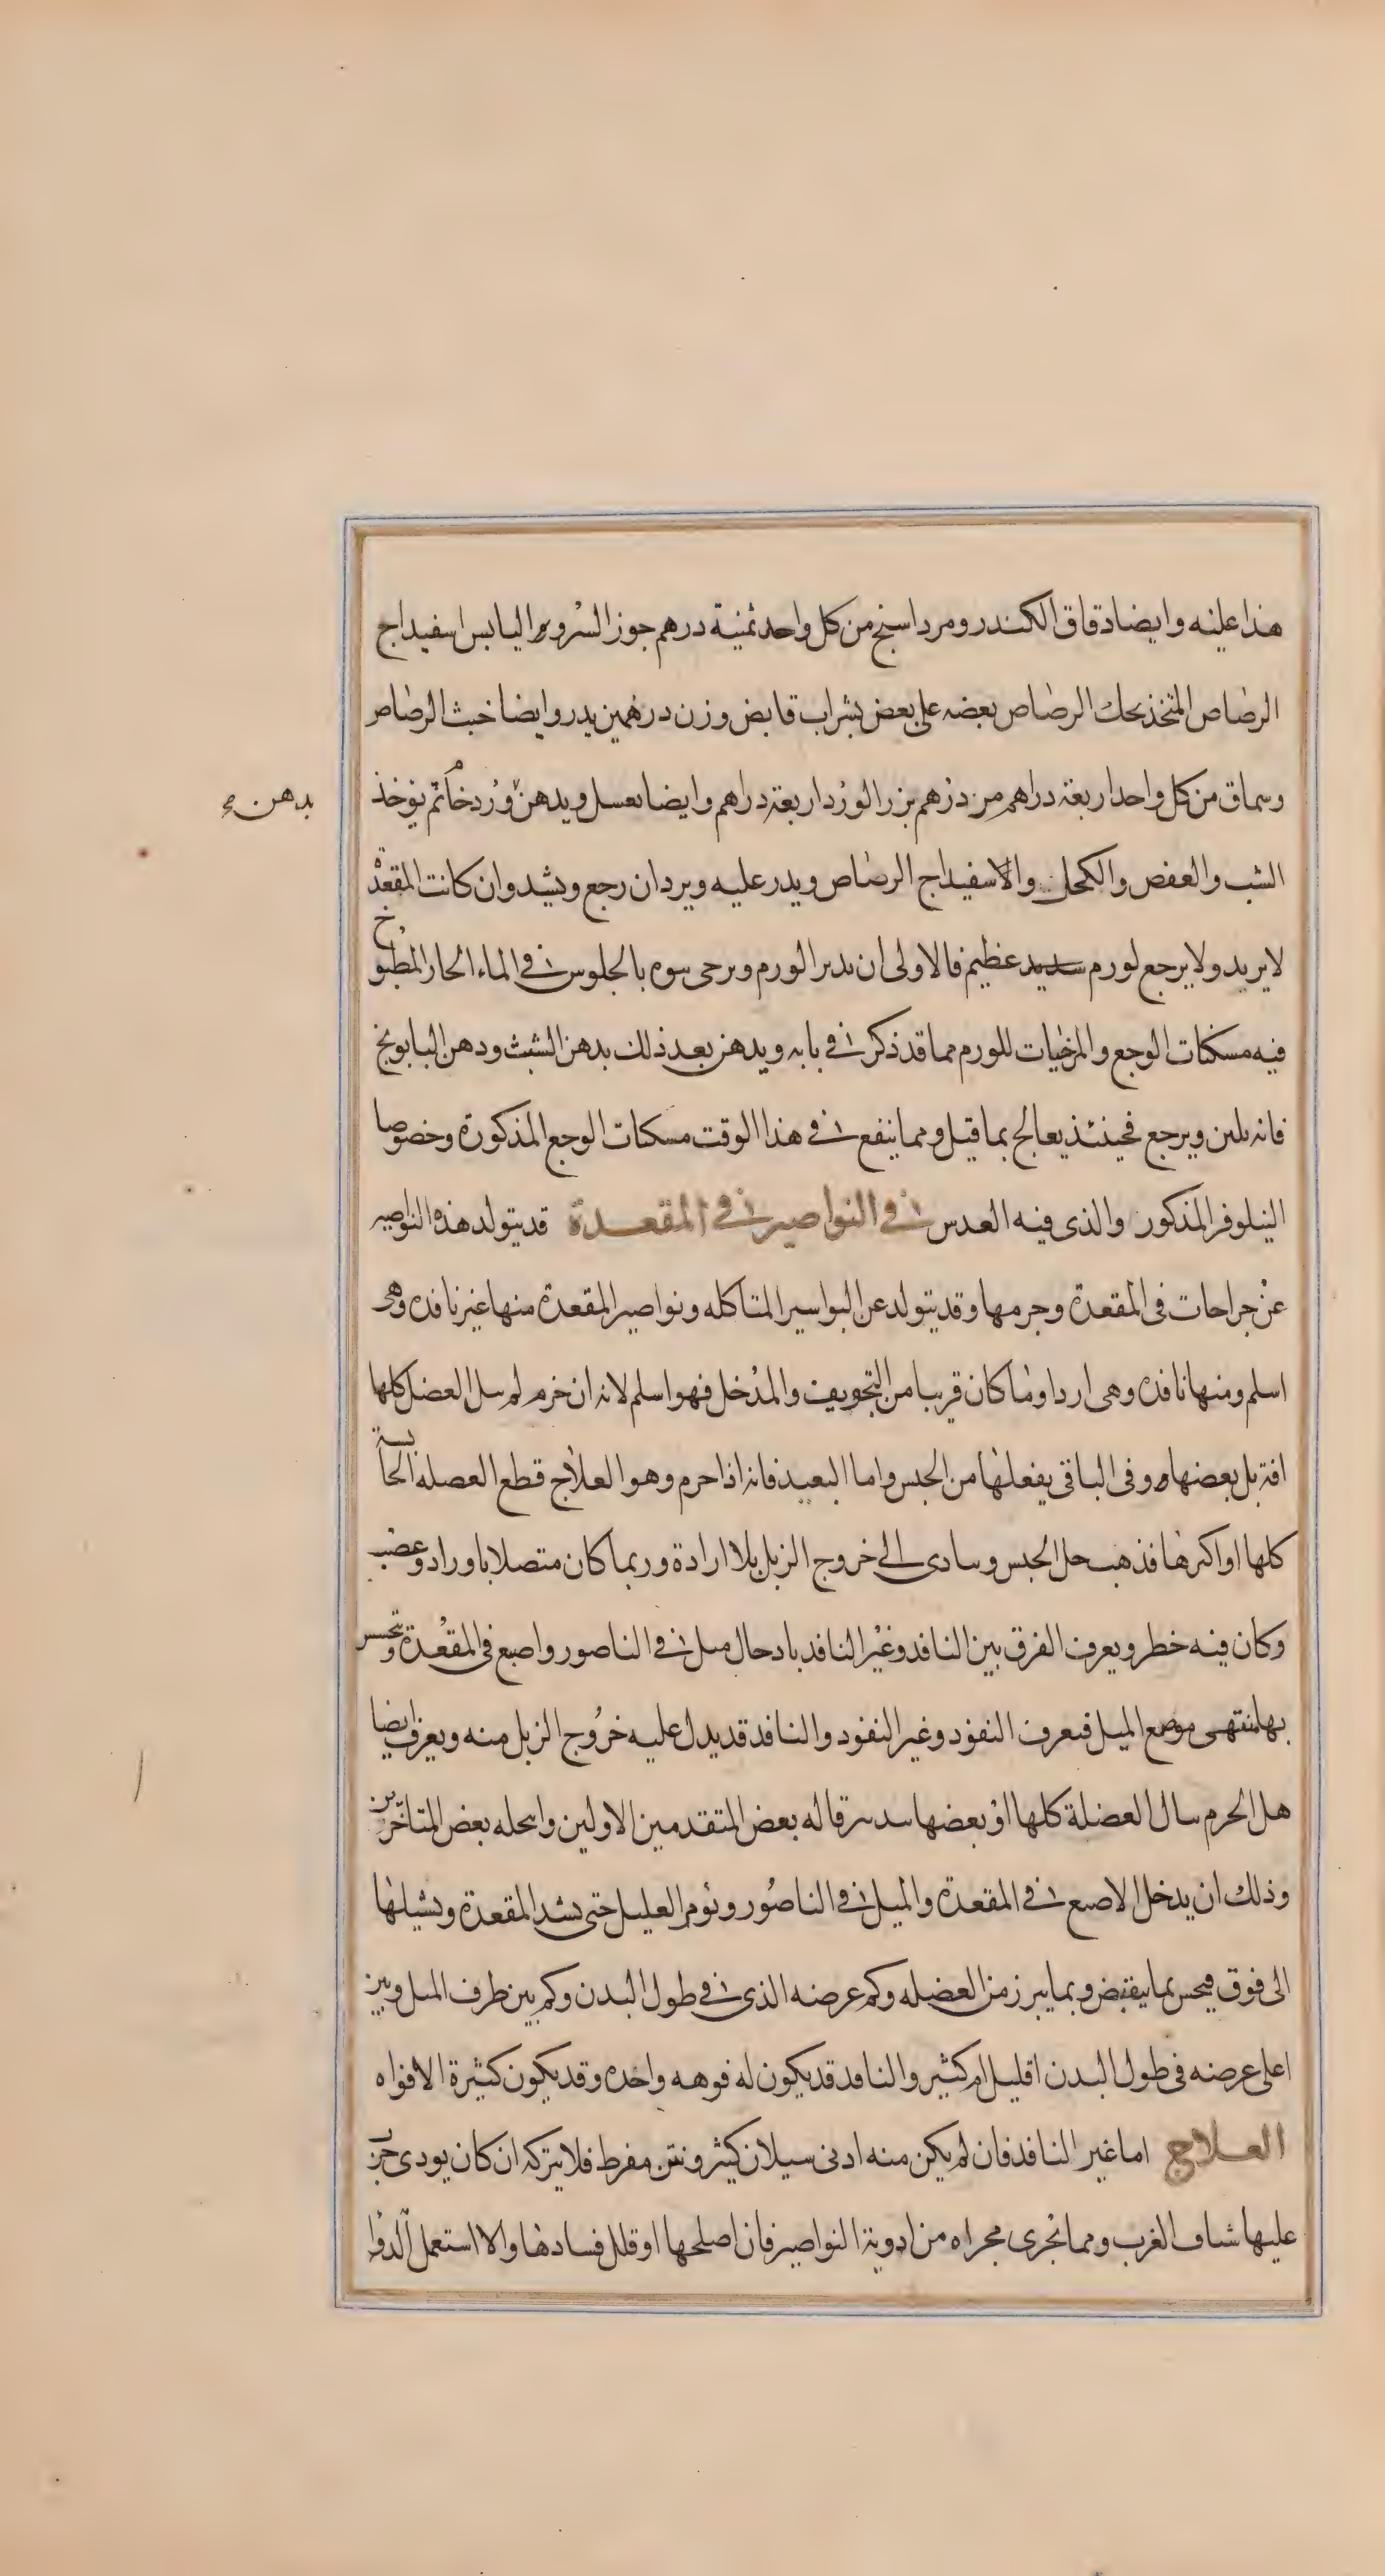 هذا علیه وایضا دقاق الکندر ومرداسنج من کل واحد ثمنیة درهم جوز السرو الیابس اسفیداج
الرصاص المتخذ بحك الرصاص بعضه علی بعض بشراب قابض وزن درهمین یدر وایضا خبث الرصاص
وسماق من کل واحد اربعة دراهم مر درهم بزر الورد اربعة دراهم وایضا یعسل ویدهن ورد خام ثم یوخذ
بدهن
الشب والعفص والکحل والاسفیداج الرصاص ویدر علیه ویرد ان رجع ویشد وان کانت المقعدة
لا یرید ولا یرجع لورم شدید عظیم فالاولی ان یدبر الورم ویرخی بالجلوس فی الماء الحار المطبوخ
فیه مسکنات الوجع والمرخیات للورم مما قد ذکر فی بابه ویدهن بعد ذلك بدهن الشبث ودهن البابونج
فانه یلین ویرجع فحینئذ یعالج بما قیل ومما ینفع فی هذا الوقت مسکنات الوجع المذکورة وخصوصا
النیلوفر المذکور والذی فیه العدس فی النواصیر فی المقعدة قد یتولد هذه النواصیر
عن جراحات فی المقعدة وجرمها وقد یتولد عن البواسیر المتاکله ونواصیر المقعدة منها غیر نافده وهی
اسلم ومنها نافده وهی اردا وما کان قریبا من التجویف والمدخل فهو اسلم لانه ان خرم لم ینل العضل کلها
افة بل بعضها وفی الباقی یفعلها من الحبس واما البعید فانه اذا حرم وهو العلاج قطع العصله الحابسة
کلها او اکثرها فذهب جل الحبس وتتادی الی خروج الزبل بلا ارادة وربما کان متصلا باوراد وعصب
وکان فیه خطر ویعرف الفرق بین النافد وغیر النافد بادخال میل فی الناصور واصبع فی المقعدة وتحسس
بها منتهی موضع المیل فیعرف النفود وغیر النفود والنافد قد یدل علیه خروج الزبل منه ویعرف ایضا
هل الخرم ینال العضلة کلها او بعضها بتدبیر قاله بعض المتقدمین الاولین وانتحله بعض المتاخرین
وذلك ان یدخل الاصبع فی المقعدة والمیل فی الناصور ونومر العلیل حتی یشد المقعدة ویشیلها
الی فوق فیحس بما یقبض وبما یبرز من العضله وکم عرضه الذی فی طول البدن وکم بین طرف المیل وبین
اعلی عرضه فی طول البدن اقلیل ام کثیر والنافد قد یکون له فوهه واحده وقد یکون کثیرة الافواه
العلاج اما غیر النافذ فان لم یکن منه ادنی سیلان کثیر ونتن مفرط فلا یترکه ان کان یودی
علیها شیاف الغرب ومما یجری مجراه من ادویة النواصیر فان اصلحها او قلل فسادها والا استعمل الدوا